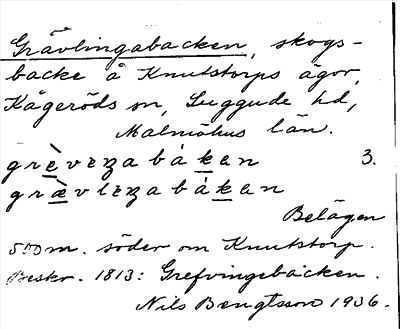 Grävlingabacken, skogs-
backe å Knutstorps ägor,
Kågeröds sn, Luggude hd,
Malmöhus län.
grèveŋabákan 3.
græ̀vleŋabákan
Belägen
500 m. söder om Knutstorp.
Beskr. 1813: Grefvingebäcken.
Nils Bengtsson 1936.